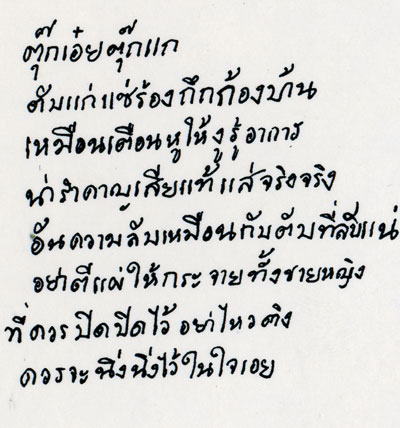 ตุ๊กเอ๋ยตุ๊กแก
ตับแก่แซ่ร้องกึกก้องบ้าน
เหมือนเตือนหูให้งูรู้อาการ
น่ารำคาญเสียแท้แส่จริงจริง
อันความลับเหมือนกับตับที่ลับแน่
อย่าตีแผ่ให้กระจายทั้งชายหญิง
ที่ควรปิดปิดไว้อย่าไหวติง
ควรจะนิ่งนิ่งไว้ในใจเอย